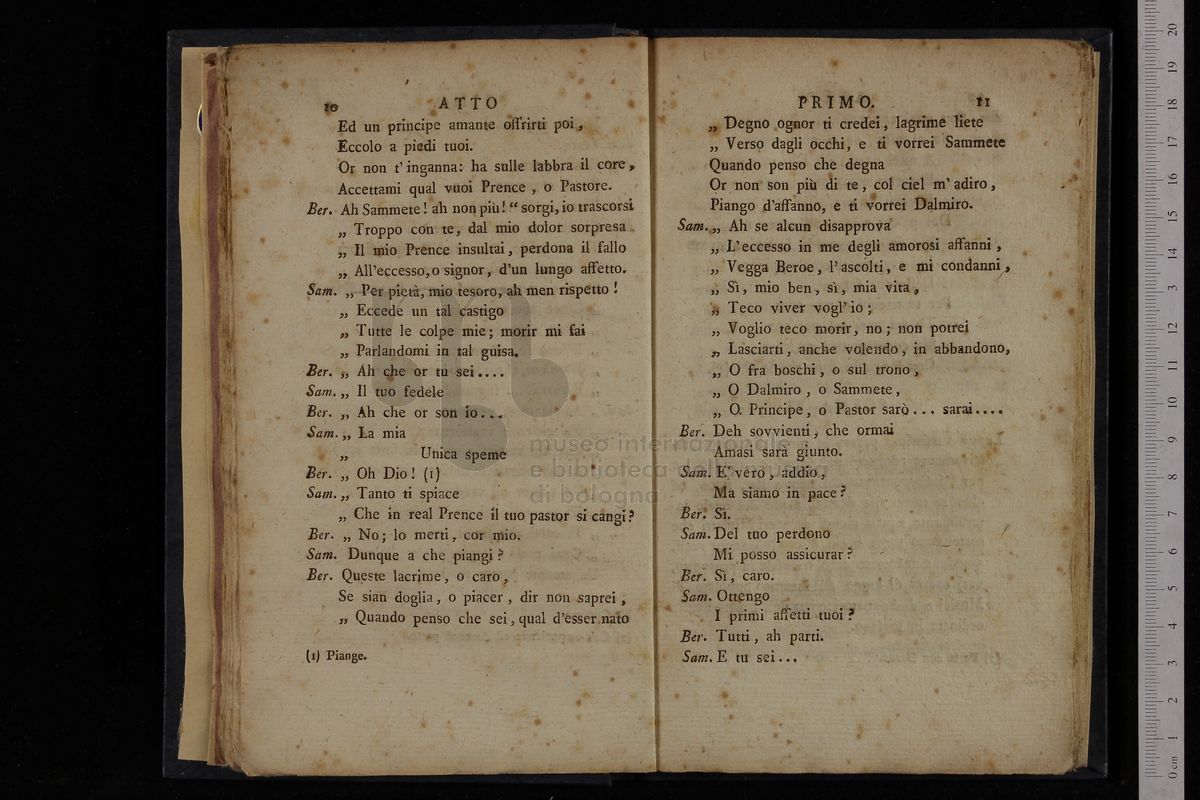 10 ATTO
Ed un principe amante offrirti poi,
Eccolo a piedi tuoi.
Or non t'inganna: ha sulle labbra il core,
Accettami qual vuoi Prence, o Pastore.
Ber. Ah Sammete! ah non più! “ sorgi, io trascorsi
„ Troppo con te, dal mio dolor sorpresa
„ Il mio Prence insultai, perdona il fallo
„ All'eccesso, o signor, d'un lungo affetto.
Sam. „ Per pietà, mio tesoro, ah men rispetto!
„ Eccede un tal castigo
„ Tutte le colpe mie; morir mi fai
„ Parlandomi in tal guisa.
Ber. „ Ah che or tu sei....
Sam. „ Il tuo fedele
Ber. „ Ah che or son io...
Sam. „ La mia
„ Unica speme
Ber. „ Oh Dio! (1)
Sam. „ Tanto ti spiace
„ Che in real Prence il tuo pastor si cangi?
Ber. „ No; lo merti, cor mio.
Sam. Dunque a che piangi?
Ber. Queste lacrime, o caro,
Se sian doglia, o piacer, dir non saprei,
„ Quando penso che sei, qual d'esser nato
(1) Piange.
PRIMO. 11
„ Degno ognor ti credei, lagrime liete
„ Verso dagli occhi, e ti vorrei Sammete
Quando penso che degna
Or non son più di te, col ciel m'adiro,
Piango d'affanno, e ti vorrei Dalmiro.
Sam. „ Ah se alcun disapprova
„ L'eccesso in me degli amorosi affanni,
„ Vegga Beroe, l'ascolti, e mi condanni,
„ Sì, mio ben, sì, mia vita,
„ Teco viver vogl'io;
„ Voglio teco morir, no; non potrei
„ Lasciarti, anche volendo, in abbandono,
„ O fra boschi, o sul trono,
„ O Dalmiro, o Sammete,
„ O. Principe, o Pastor sarò... sarai....
Ber. Deh sovvienti, che ormai
Amasi sarà giunto.
Sam. E' vero, addio,
Ma siamo in pace?
Ber. Sì.
Sam. Del tuo perdono
Mi posso assicurar?
Ber. Sì, caro.
Sam. Ottengo
I primi affetti tuoi?
Ber. Tutti, ah parti.
Sam. E tu sei...
museo internazionale
e biblioteca della musica
di bologna
0 cm 1 2 3 4 5 6 7 8 9 10 11 12 13 14 15 16 17 18 19 20